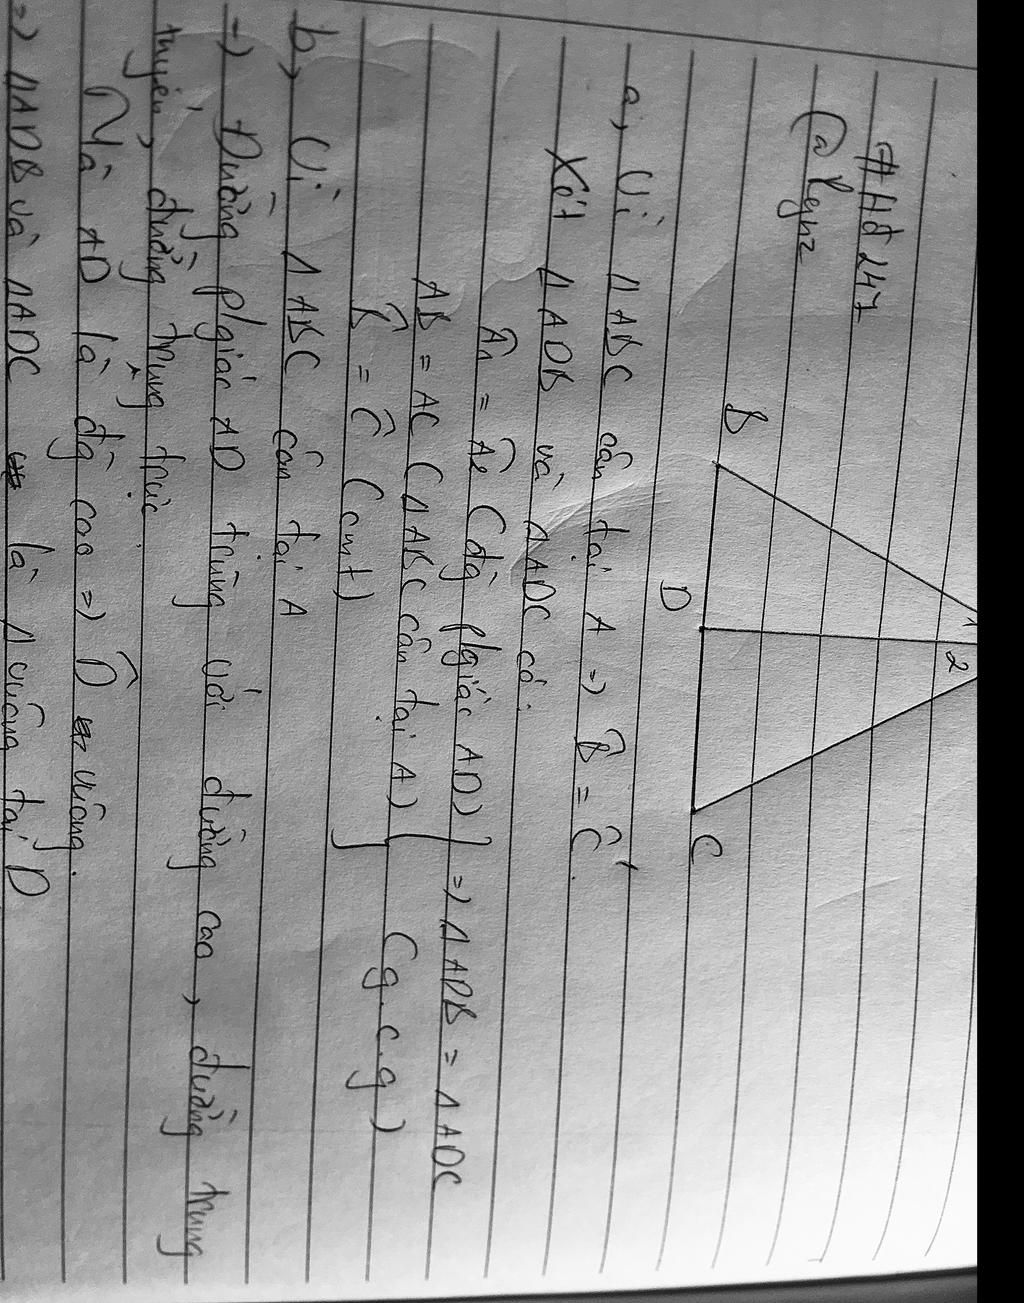 #Hđ247
@lgnz
1
2
B
D
C
a, Vì ΔABC cân tại A => B̂ = Ĉ.
Xét ΔADB và ΔADC có:
Â1 = Â2 (đg pgiác AD)
AB = AC (ΔABC cân tại A)
=> ΔADB = ΔADC
B̂ = Ĉ (cmt)
(g.c.g)
b, Vì ΔABC cân tại A
=) Đường pgiác AD trùng với đường cao, đường trung
tuyến, đường trung trực
Mà AD là đg cao => D̂ vuông.
=> ΔADB và ΔADC là Δ vuông tại D